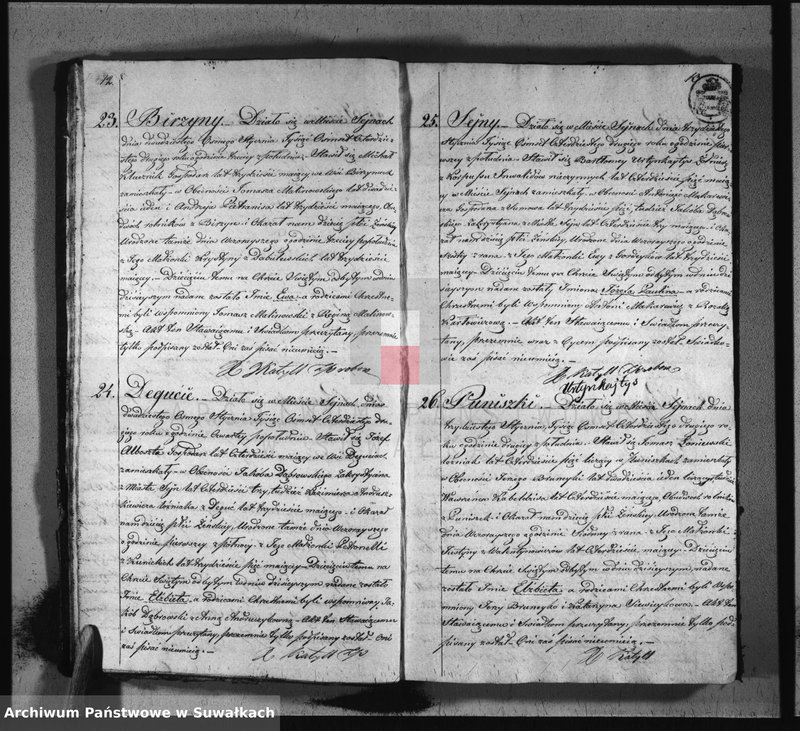 12.
23. Birżyny. Działo się w Mieście Sejnach
dnia dwudziestego Osmego Stycznia Tysiąc Ośmset Czterdzie-
stego drugiego roku o godzinie trzeciey z południa. Stawił się Michał
Klucznik Gospodarz lat trzydzieści maiący we Wsi Birżynach
zamieszkały w Obecności Tomasza Malinowskiego lat
ieden i Andrzeja Pietranisa lat trzydzieści maiącego, Oby-
dwóch rolników z Birżyn i Okazał nam dziecię płci Żeńskiey
Urodzone tamże dnia wczorayszego o godzinie trzeciey popołudniu
z Jego Małżonki Krystyny z lat trzydzieści
maiącey. Dziecięciu temu na Chrzcie Świętym odbytym w dniu
dzisieyszym nadane zostało Imie Ewa a rodzicami Chrzestne-
mi byli wspomniony Tomasz Malinowski z Reginą Malinow-
ską. Akt ten Stawaiącemu i Świadkom przeczytany, przezemnie
tylko podpisany został Oni zaś pisać nieumieią.
24. Degucie. Działo się w Mieście Sejnach dnia
dwudziestego Osmego Stycznia Tysiąc Ośmset Czterdziestego dru-
giego roku o godzinie Czwartey popołudniu. Stawił się Józef
Gospodarz lat Czterdzieści maiący we Wsi Deguciach
zamieszkały w Obecności Jakóba Dąbrowskiego Zakrystyana
z Miasta Sejn lat Czterdzieści trzy, tudzież Kazimierza Andrusz-
kiewicza z Deguć lat trzydzieści maiącego i Okazał
nam dziecię płci Żeńskiey, Urodzone tamże dnia wczorayszego
o godzinie pierwszey z północy z Jego Małżonki Petronelli
z lat trzydzieści pięć maiącey. Dziecięciu temu na
Chrzcie Świętym odbytym w dniu dzisieyszym nadane zostało
Imie Elżbieta, a rodzicami Chrzestnemi byli wspomniony Ja-
kób Dąbrowski z Anną Akt ten Stawaiącemu
i Świadkom przeczytany, przezemnie tylko podpisany został Oni
zaś pisać nieumieią.
13
25. Sejny. Działo się w Mieście Sejnach dnia trzydziestego
Stycznia Tysiąc Ośmset Czterdziestego drugiego roku o godzinie pier-
wszey z południa. Stawił się Bartłomiey Ustynkajtys Żołnierz
z Korpusu Inwalidów nieczynnych lat Czterdzieści pięć maiący
w Mieście Sejnach zamieszkały w Obecności Antoniego Makarewi-
cza lat trzydzieści pięć, tudzież Jakóba Dąbrow-
skiego Zakrystyana z Miasta Sejn lat Czterdzieści trzy maiących i Oka-
zał nam dziecię płci Żeńskiey Urodzone dnia wczorayszego o godzinie
z rana z Jego Małżonki Ewy z lat trzydzieści
maiącey. Dziecięciu temu na Chrzcie Świętym odbytym w dniu dzi-
sieyszym nadane zostały Imiona Paulina a rodzicami
Chrzestnemi byli Wspomniony Antoni Makarewicz z Rozalią
Akt ten Stawaiącemu i Świadkom przeczy-
tany, przezemnie wraz z Oycem podpisany został Świadko-
wie zaś pisać nieumieią.
Ustynkajtys
26. Puniszki. Działo się w Mieście Sejnach dnia
trzydziestego Stycznia Tysiąc Ośmset Czterdziestego drugiego ro-
ku o godzinie drugiey z południa. Stawił się Tomasz
lat Czterdzieści pięć liczący w Puniszkach zamieszkały
w Obecności Jerzego lat dwadzieścia ieden liczącego i
Wawrzeńca lat Czterdzieści maiącego Obudwóch rolników
z Puniszek i Okazał nam dziecię płci Żeńskiey Urodzone tamże
dnia wczorayszego o godzinie z rana z Jego Małżonki
Justyny z lat Czterdzieści maiącey. Dziecięciu
temu na Chrzcie Świętym odbytym w dniu dzisieyszym nadane
zostało Imie Elżbieta, a rodzicami Chrzestnemi byli wspo-
mniony Jerzy i Katarzyna Akt ten
Stawaiącemu i Świadkom przeczytany, przezemnie tylko pod-
pisany został Oni zaś pisać nieumieią.
Archiwum Państwowe w Suwałkach